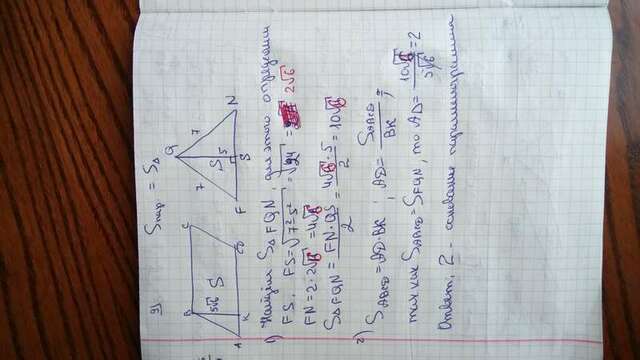 9)
Sпар = S△
B C Q
5√6 S 7 7
S 5
A K D F S N
1) Найдём S△FQN, для этого определим
FS. FS=√7²5² =√24 = 2√6
FN=2·2√6 =4√6
S△FQN= FN·QS/2 = 4√6·5/2 = 10√6
2) SABCD=AD·BK ; AD= SABCD/BK ;
так как SABCD=SFQN, то AD= 10√6/5√6 =2
Ответ: 2 - основание параллелограмма